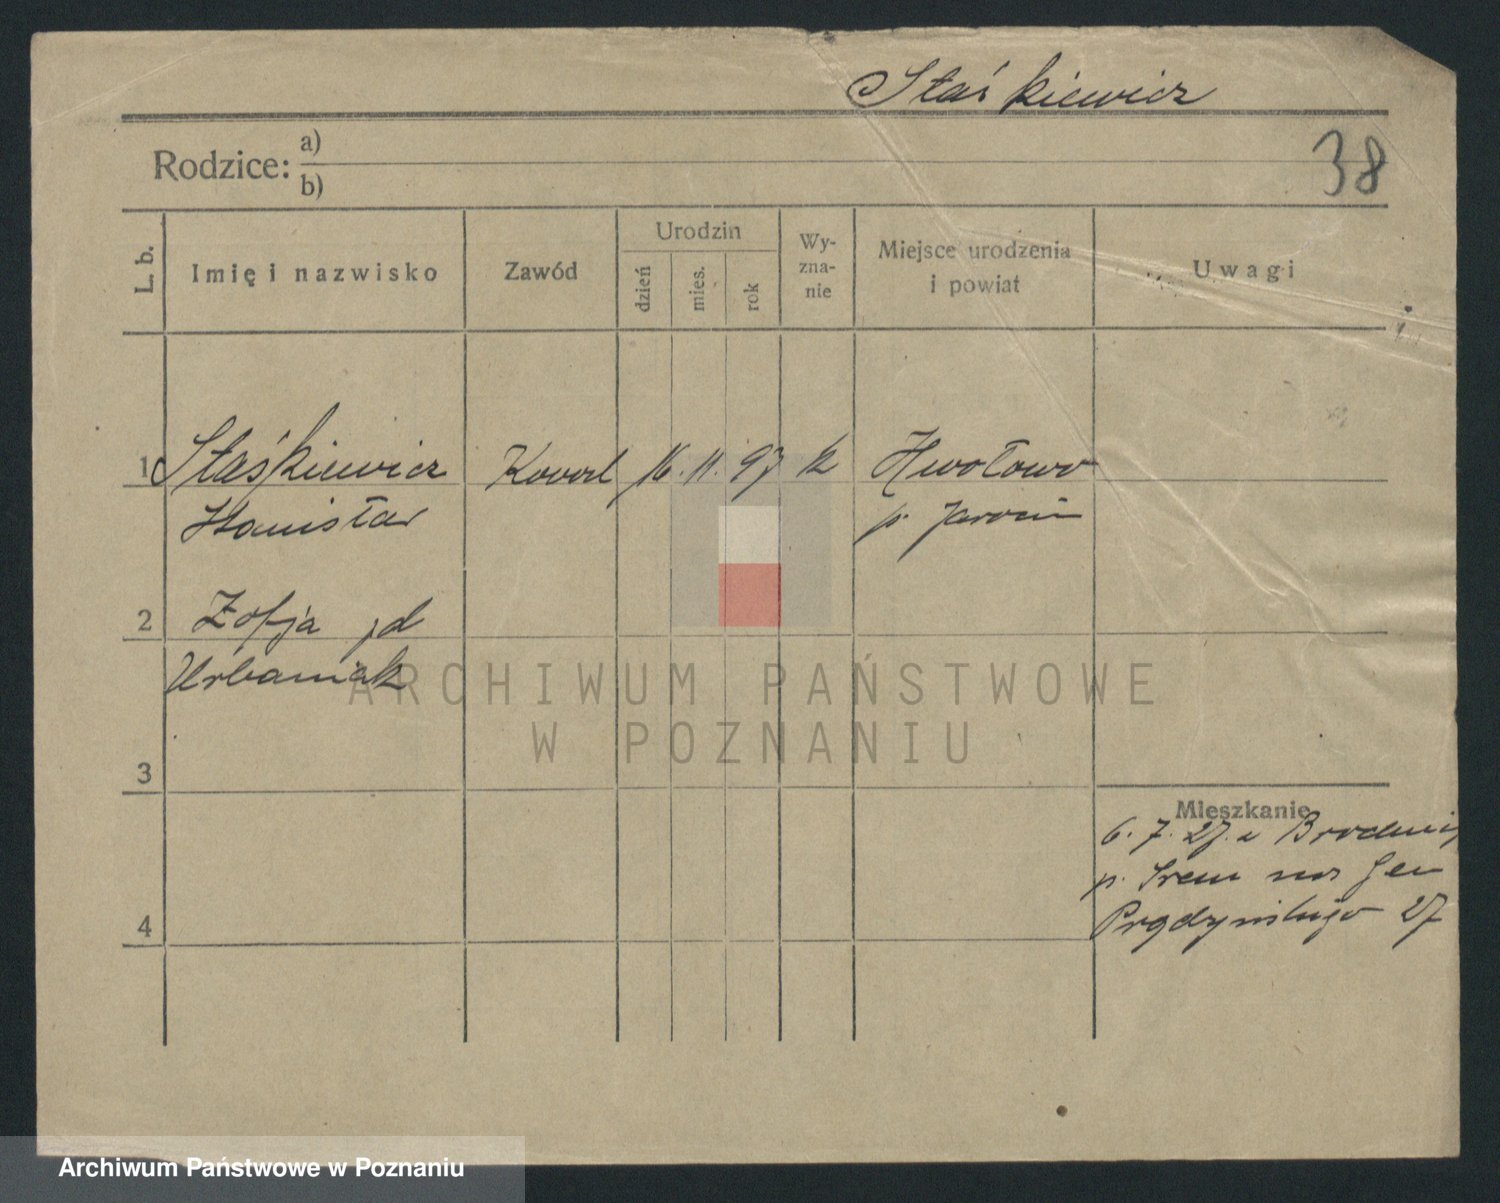 Staśkiewicz
38
Rodzice: a)
b)
L. b. Imię i nazwisko Zawód Urodzin dzień mies. rok Wy-zna-nie Miejsce urodzenia i powiat Uwagi
1 Staśkiewicz 16. 11. 97 k
Stanisław p. Jarocin
2 Zofja
Urbaniak
3
Mieszkanie
6. 7. 27. z
p. Śrem Gen
4 Prądzyńskiego 27
ARCHIWUM PAŃSTWOWE
W POZNANIU
Archiwum Państwowe w Poznaniu